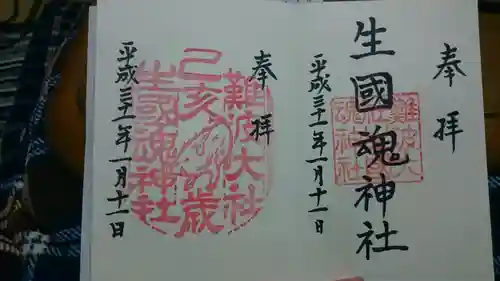 奉拝
生國魂神社
難波大社
生國魂神社
平成三十一年一月十一日
奉拝
難波大社
己亥歳
生國魂神社
平成三十一年一月十一日